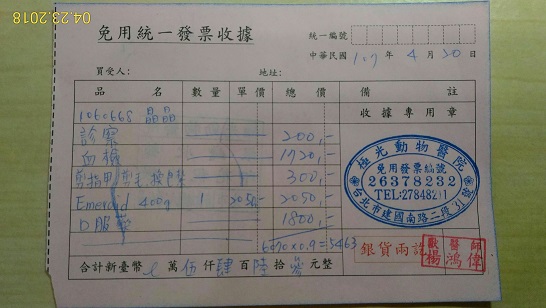 04.23.2018
免用統一發票收據
統一編號
中華民國 107 年 4 月 20 日
買受人: 地址:
品名 數量 單價 總價 備註
收據專用章
1060668 晶晶
診察 200,-
血檢 1720,-
剪指甲/剃毛 300,-
Emerald 400g 1 2050,- 2050,-
口服藥 1800,-
6070×0.9=5463
極光動物醫院
免用發票編號
26378232
TEL:27848271
台北市建國南路二段31號
銀貨兩訖
獸醫師
楊鴻偉
合計新臺幣 萬 伍 仟 肆 百 陸 拾 參 元整